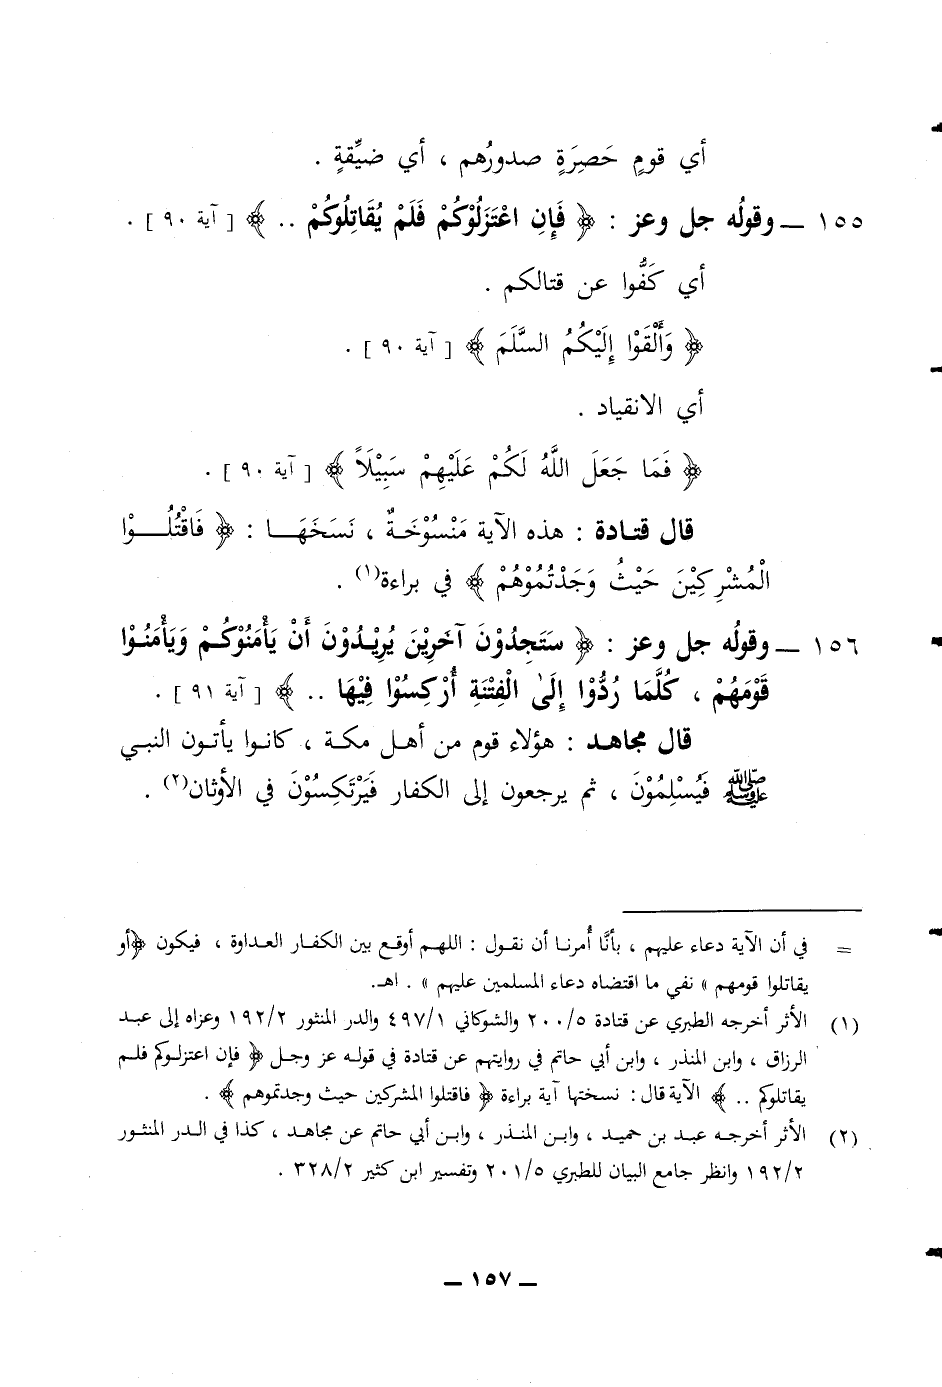 أي قومٍ حَصِرَةٍ صدورُهم ، أي ضيِّقةٍ .
١٥٥ ــ وقولُه جل وعز : ﴿ فَإِنِ اعْتَزَلُوْكُمْ فَلَمْ يُقَاتِلُوكُمْ .. ﴾ [ آية ٩٠ ] .
أي كَفُّوا عن قتالكم .
﴿ وَأَلْقَوْا إِلَيْكُمُ السَّلَمَ ﴾ [ آية ٩٠ ] .
أي الانقياد .
﴿ فَمَا جَعَلَ اللَّهُ لَكُمْ عَلَيْهِمْ سَبِيْلَاً ﴾ [ آية ٩٠ ] .
قال قتـادة : هذه الآية مَنْسُوْخَـةٌ ، نَسَخَهَـــا : ﴿ فَاقْتُلُـــوْا
الْمُشْرِكِيْنَ حَيْثُ وَجَدْتُمُوْهُمْ ﴾ في براءة(١) .
١٥٦ ــ وقولُه جل وعز : ﴿ سَتَجِدُوْنَ آخَرِيْنَ يُرِيْـدُوْنَ أَنْ يَأْمَنُوْكُـمْ وَيَأْمَنُـوْا
قَوْمَهُمْ ، كُلَّمَا رُدُّوْا إِلَىٰ الْفِتْنَةِ أُرْكِسُوْا فِيْهَا .. ﴾ [ آية ٩١ ] .
قال مجاهـد : هؤلاء قوم من أهـل مكـة ، كانـوا يأتـون النبـي
ﷺ فَيُسْلِمُوْنَ ، ثم يرجعون إلى الكفار فَيَرْتَكِسُوْنَ في الأوثان(٢) .
= في أن الآية دعاء عليهم ، بأنَّا أُمرنـا أن نقـول : اللهـم أوقـع بين الكفـار العـداوة ، فيكون ﴿أو
يقاتلوا قومهم » نفي ما اقتضاه دعاء المسلمين عليهم » . اهـ.
(١) الأثر أخرجه الطبري عن قتادة ٢٠٠/٥ والشوكاني ٤٩٧/١ والدر المنثور ١٩٢/٢ وعزاه إلى عبـد
الرزاق ، وابن المنذر ، وابن أبي حاتم في روايتهم عن قتادة في قولـه عز وجـل ﴿ فإن اعتزلـوكم فلـم
يقاتلوكم .. ﴾ الآية قال : نسختها آية براءة ﴿ فاقتلوا المشركين حيث وجدتموهم ﴾ .
(٢) الأثر أخرجـه عبـد بن حميـد ، وابـن المنـذر ، وابـن أبي حاتم عن مجاهـد ، كذا في الـدر المنثـور
١٩٢/٢ وانظر جامع البيان للطبري ٢٠١/٥ وتفسير ابن كثير ٣٢٨/٢ .
ــ ١٥٧ ــ